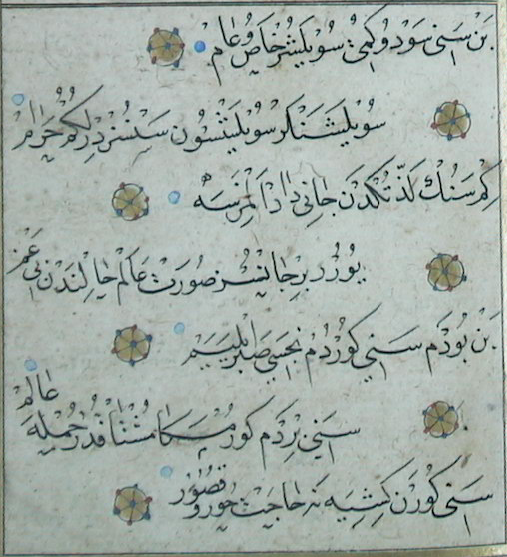 بن سنی سودوكمی سویلشر خاص و عام
سویلشنلر سویلشسون سنسز درلكم حرام
كم سنك لذتكدن جانی داد المزسه
یورر بر جانسز صورت عالم حالندن بی غم
بن بو دم سنی كوردم نجسی صبر ایلییم
سنی بر دم كورمكا مشتاقدر جمله عالم
سنی كورن كشیه نه حاجت حور و قصور